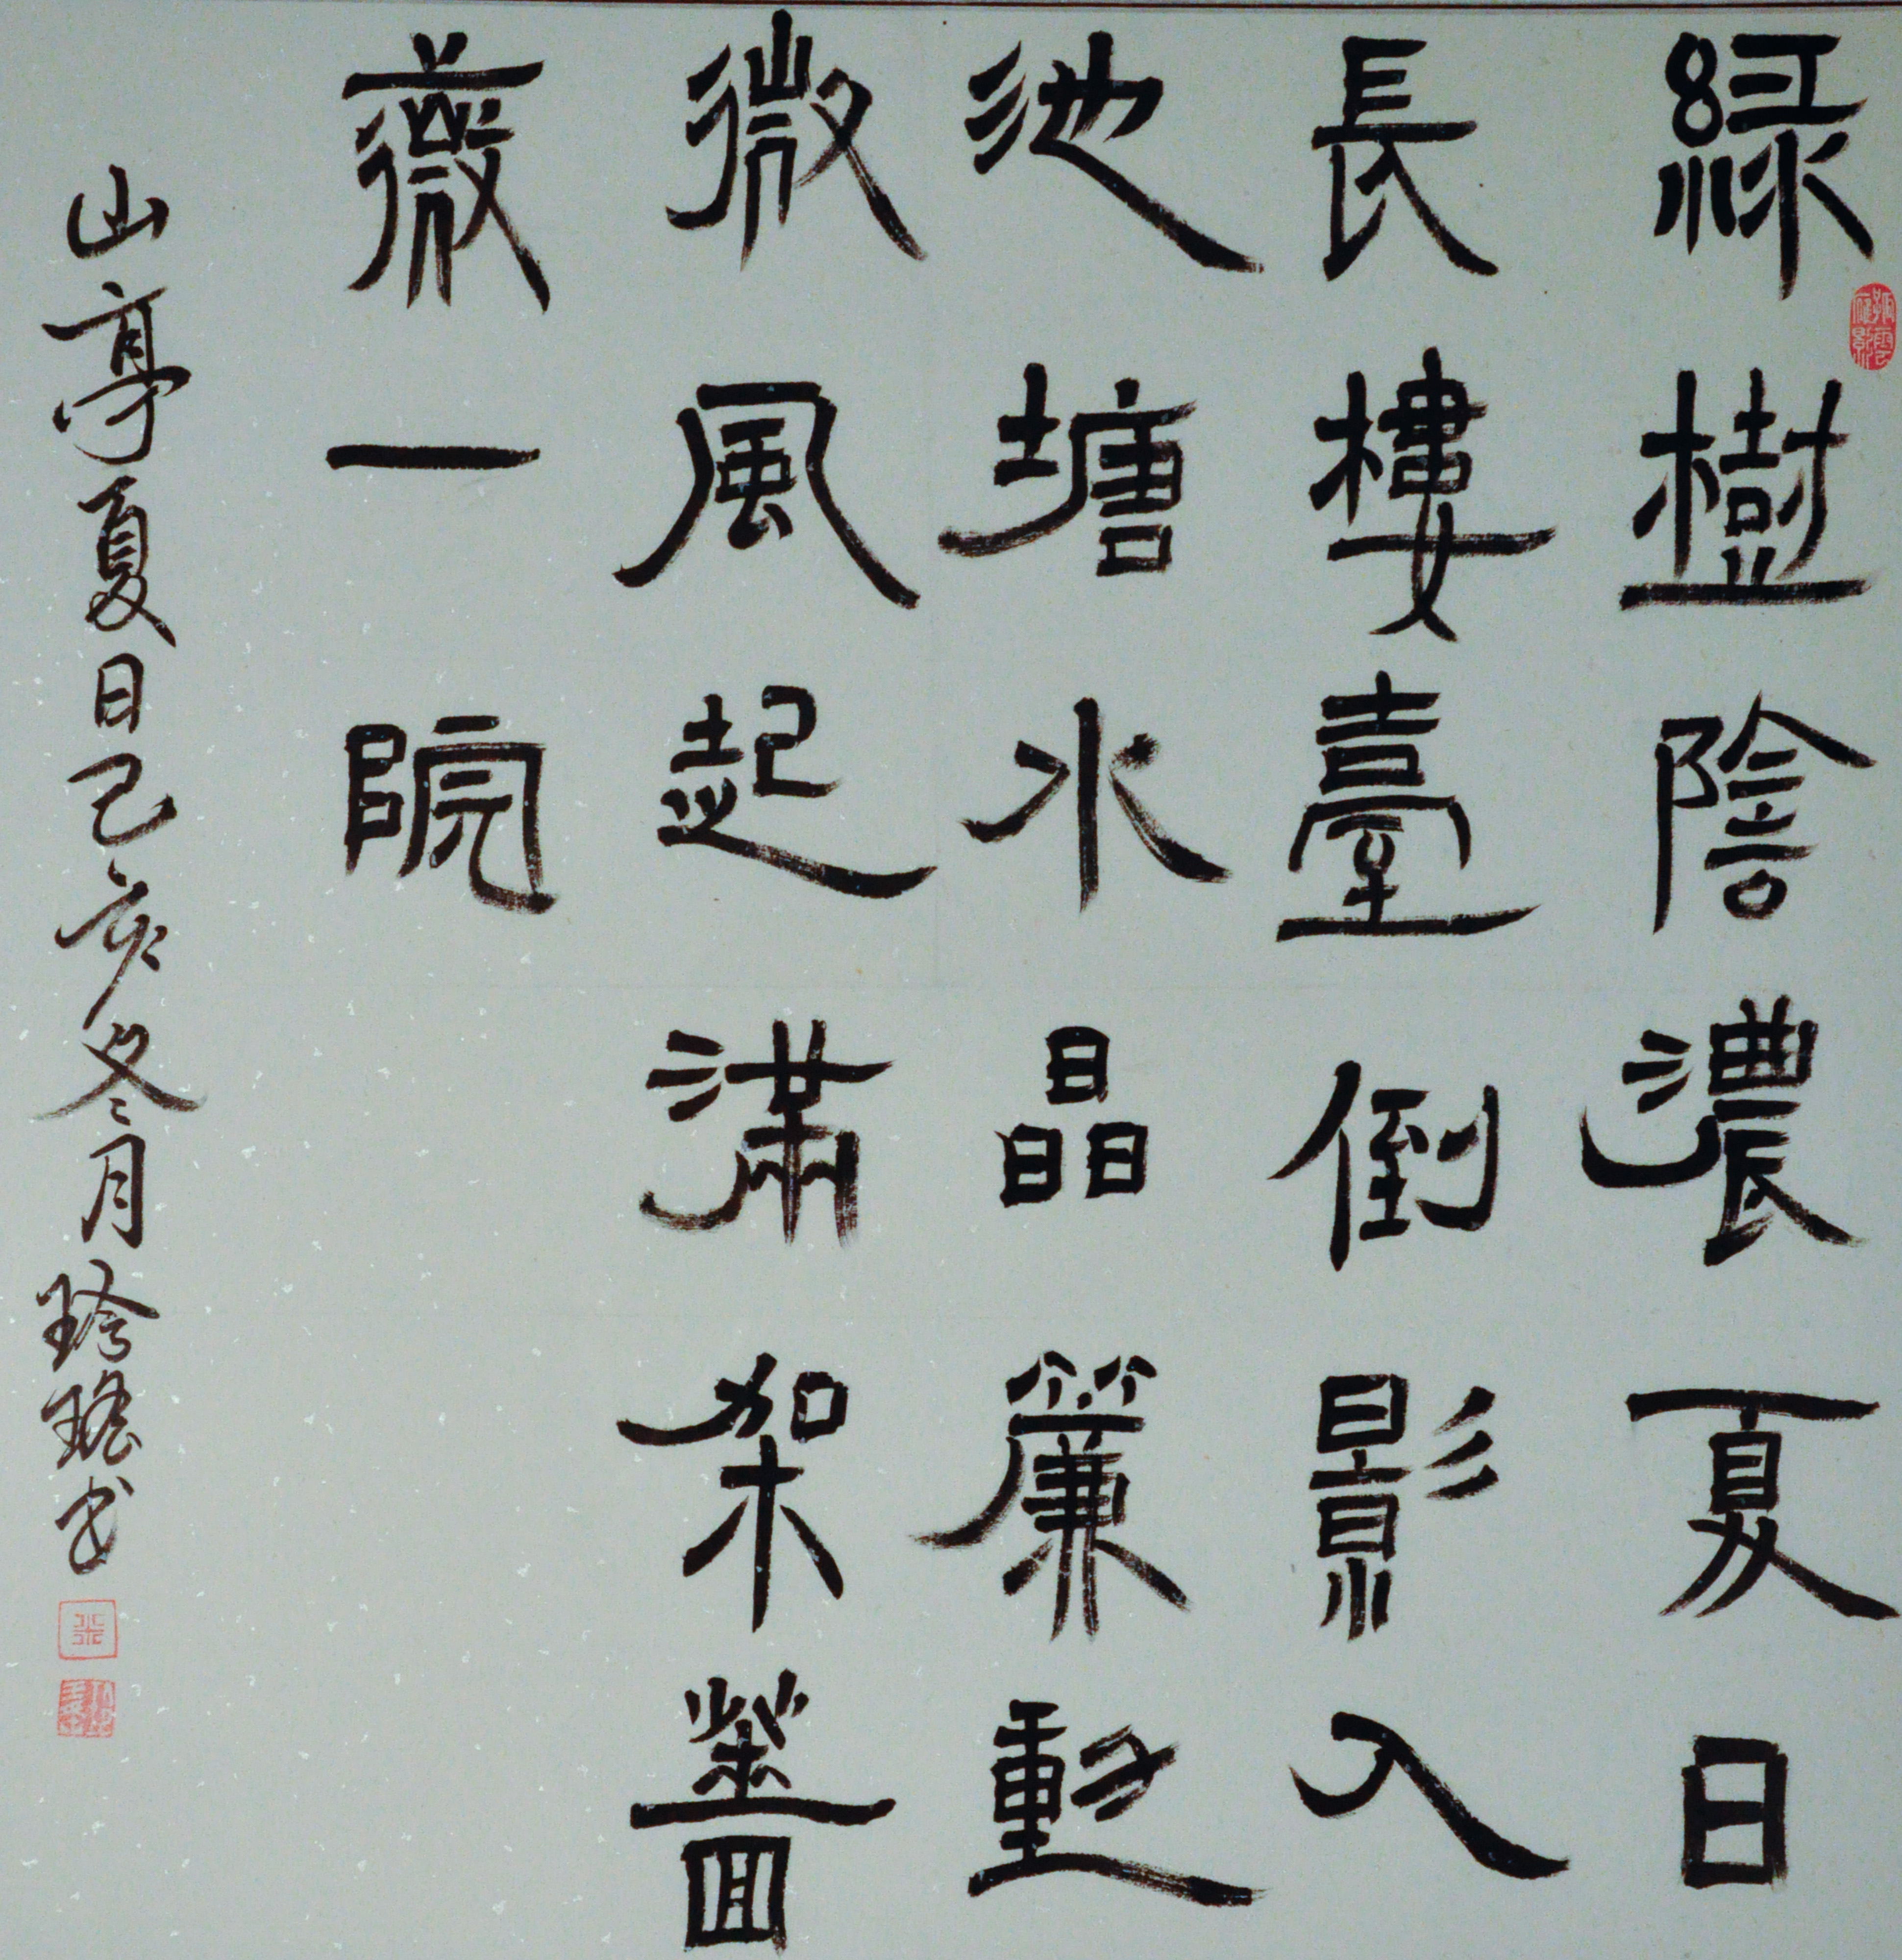 綠樹陰濃夏日
長樓臺倒影入
池塘水晶簾動
微風起滿架薔
薇一院
山亭夏日己亥冬月玲瑤書